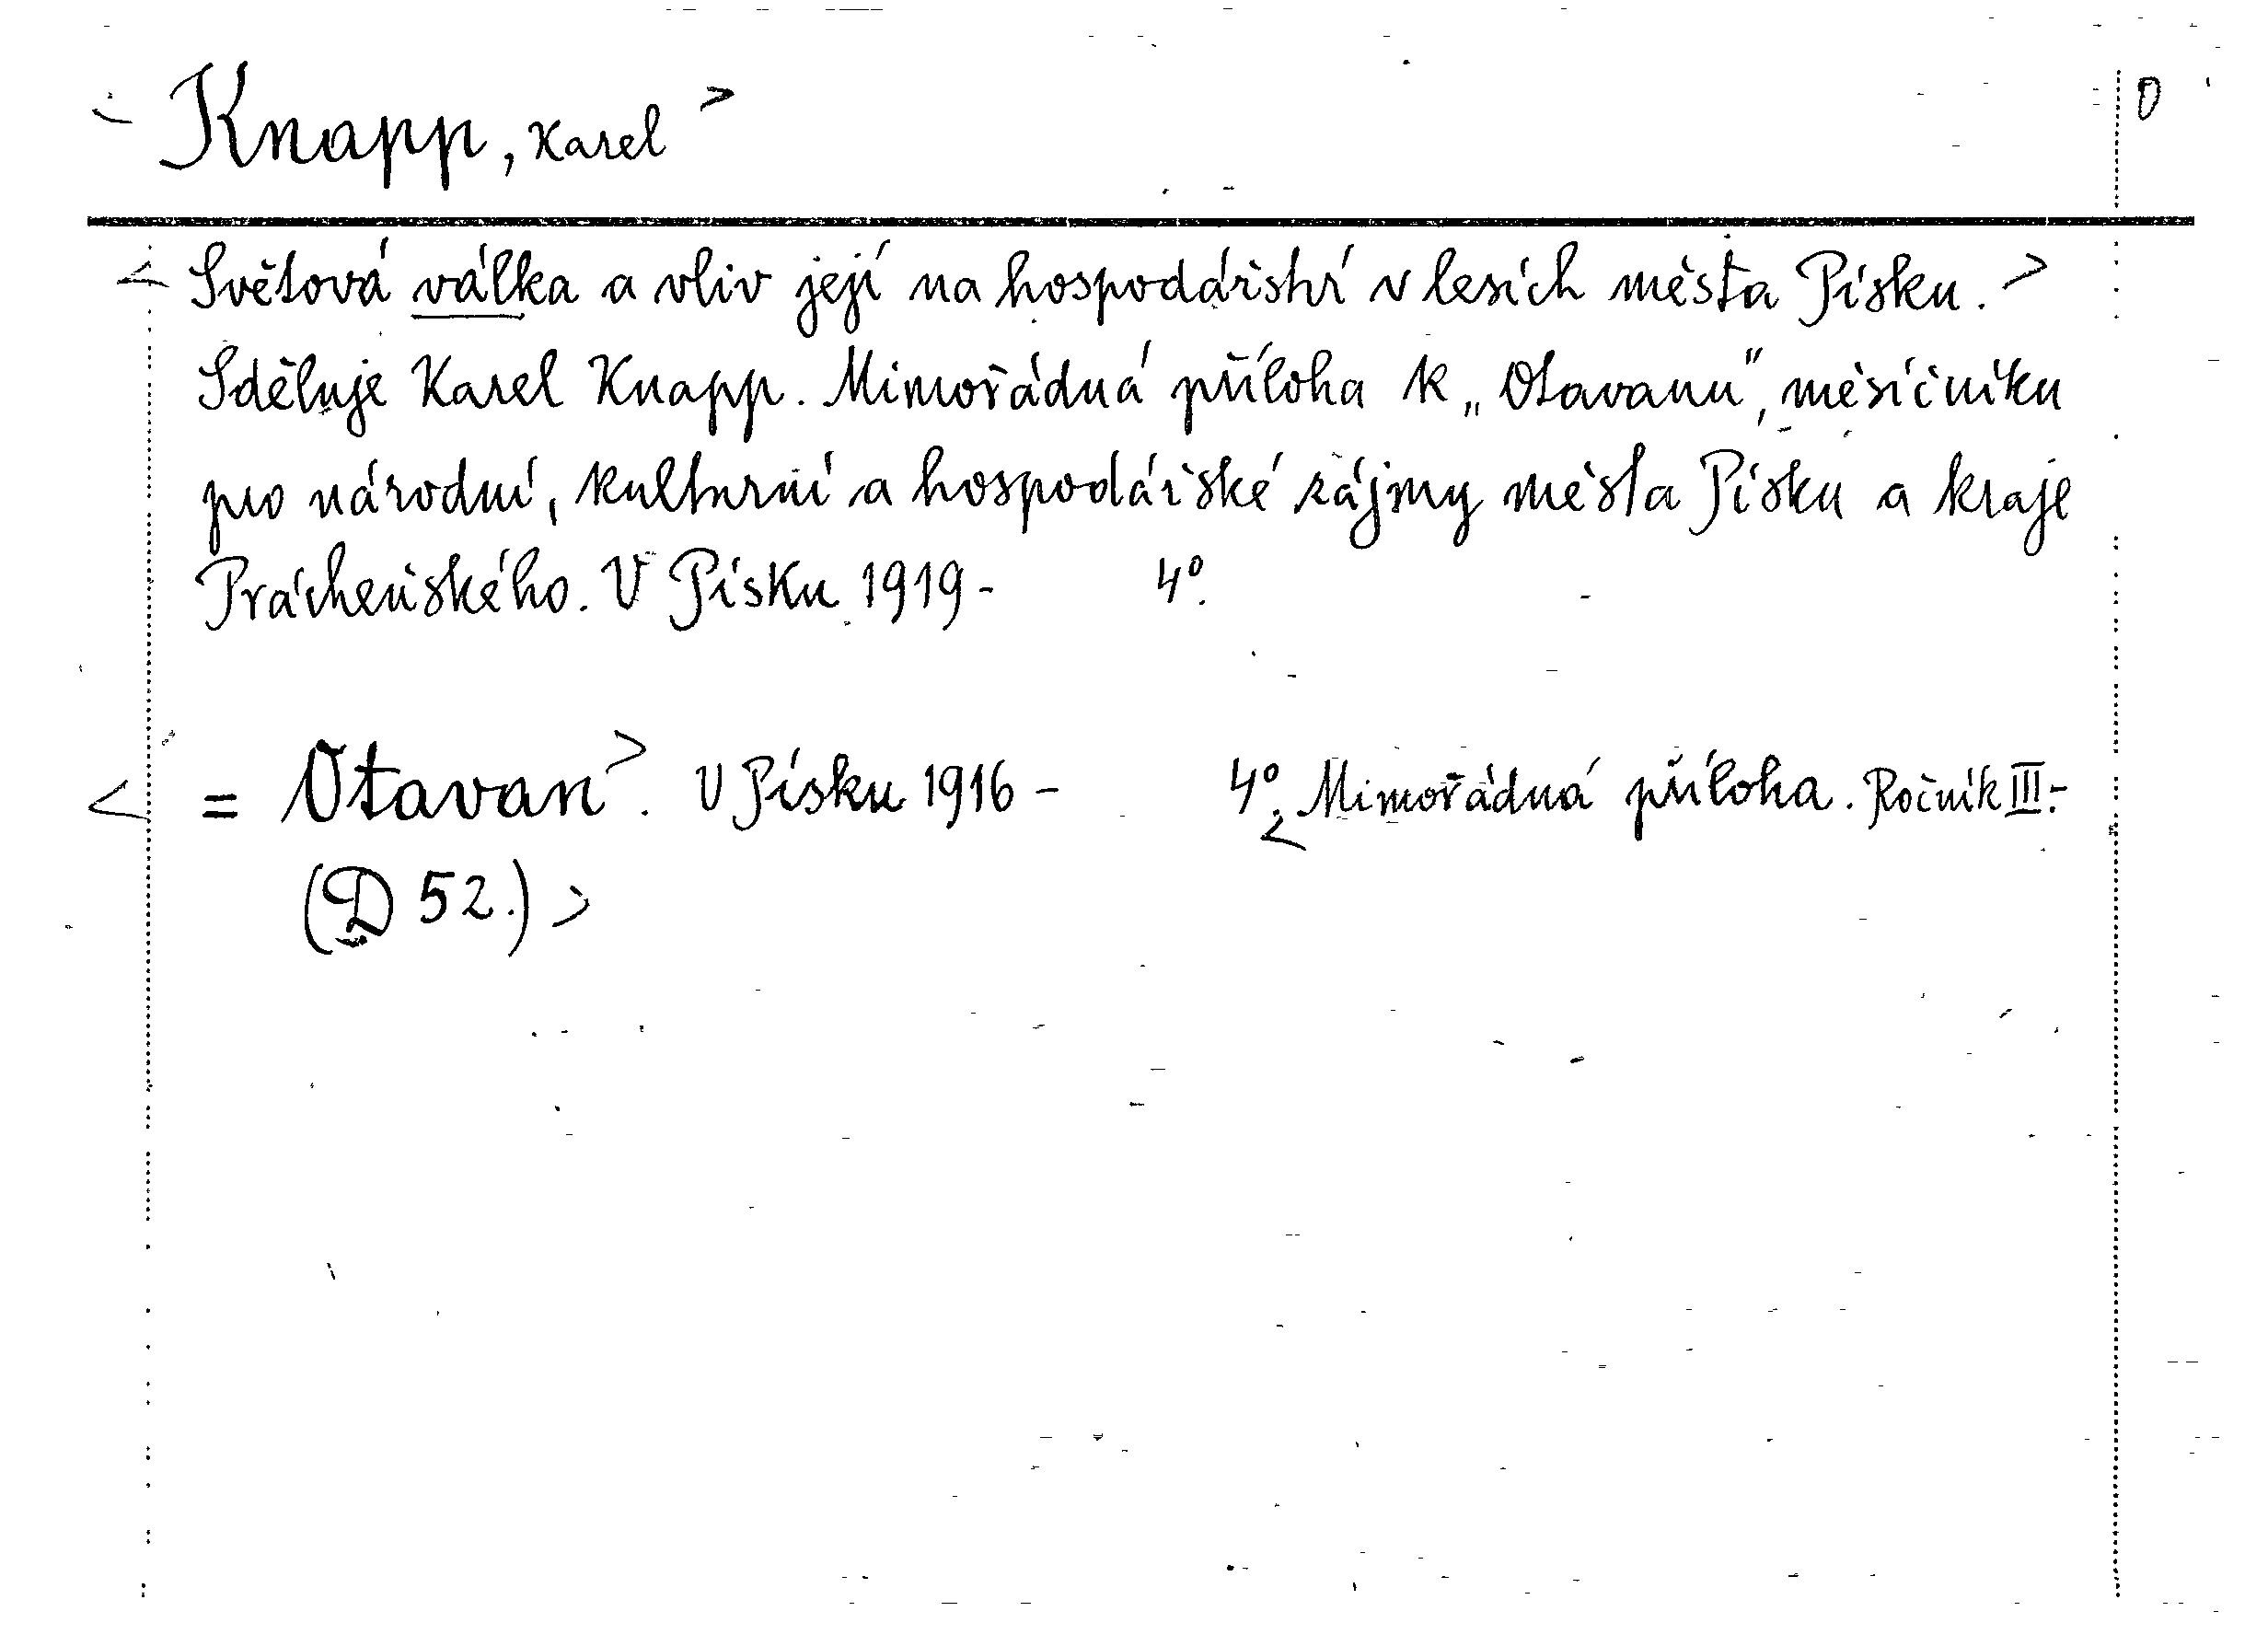 < Knapp, Karel > 0
< Světová válka a vliv její na hospodářství v lesích města Písku. >
Sděluje Karel Knapp. Mimořádná příloha k „Otavanu“, měsíčníku
pro národní, kulturní a hospodářské zájmy města Písku a kraje
Prácheňského. V Písku 1919- 4°.
< = Otavan >. V Písku 1916 - 4°. < Mimořádná příloha. Ročník III.-
(D 52.) >